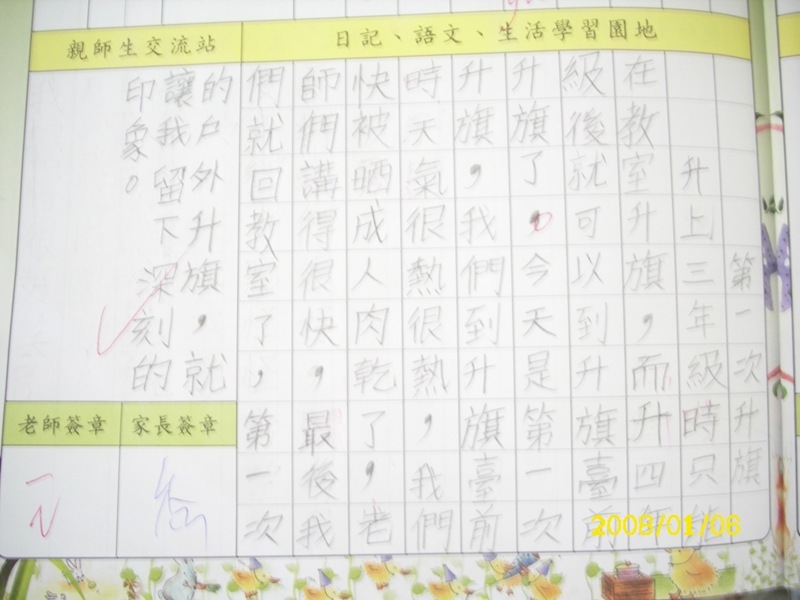 親師生交流站
日記、語文、生活學習園地
第一次升旗
升上三年級時只能
在教室升旗，而升四年
級後就可以到升旗臺前
升旗了。今天是第一次
升旗，我們到升旗臺前
時天氣很熱很熱，我們
快被晒成人肉乾了，老
師們講得很快，最後我
們就回教室了，第一次
的戶外升旗，就
讓我留下深刻的
印象。
老師簽章
家長簽章
2008/01/06